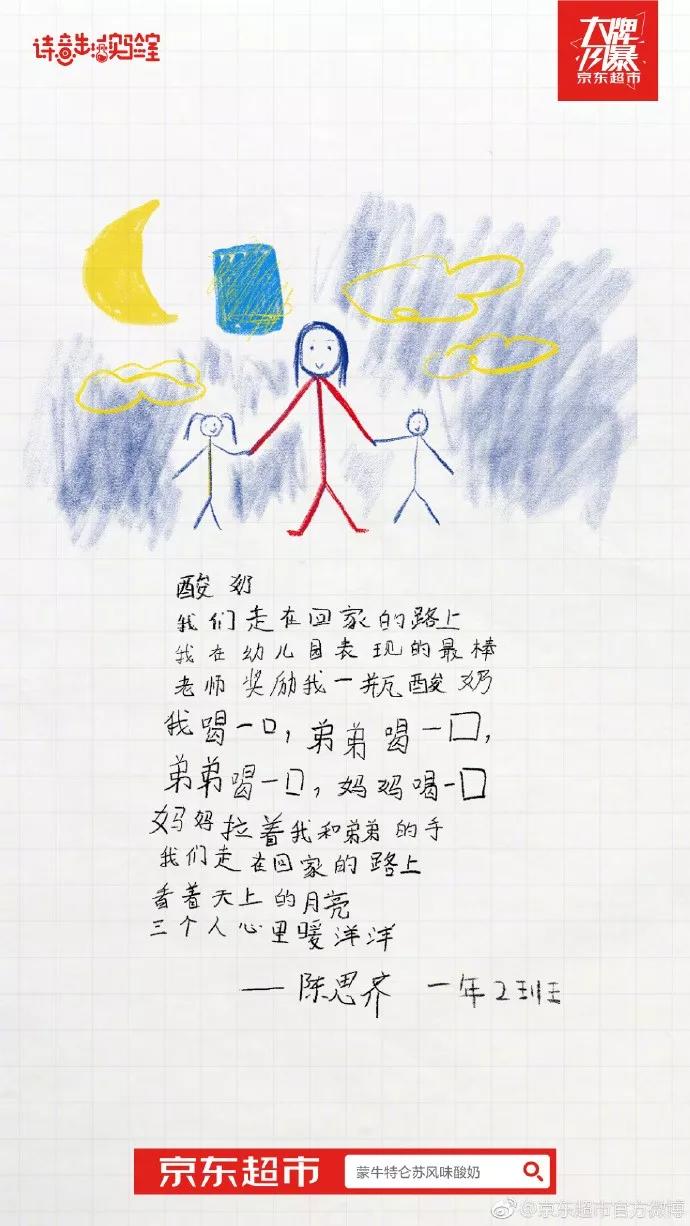 诗意生活实验室
大牌
风暴
京东超市
酸奶
我们走在回家的路上
我在幼儿园表现的最棒
老师奖励我一瓶酸奶
我喝一口，弟弟喝一口，
弟弟喝一口，妈妈喝一口
妈妈拉着我和弟弟的手
我们走在回家的路上
看着天上的月亮
三个人心里暖洋洋
——陈思齐 一年2班
京东超市 蒙牛特仑苏风味酸奶
@京东超市官方微博